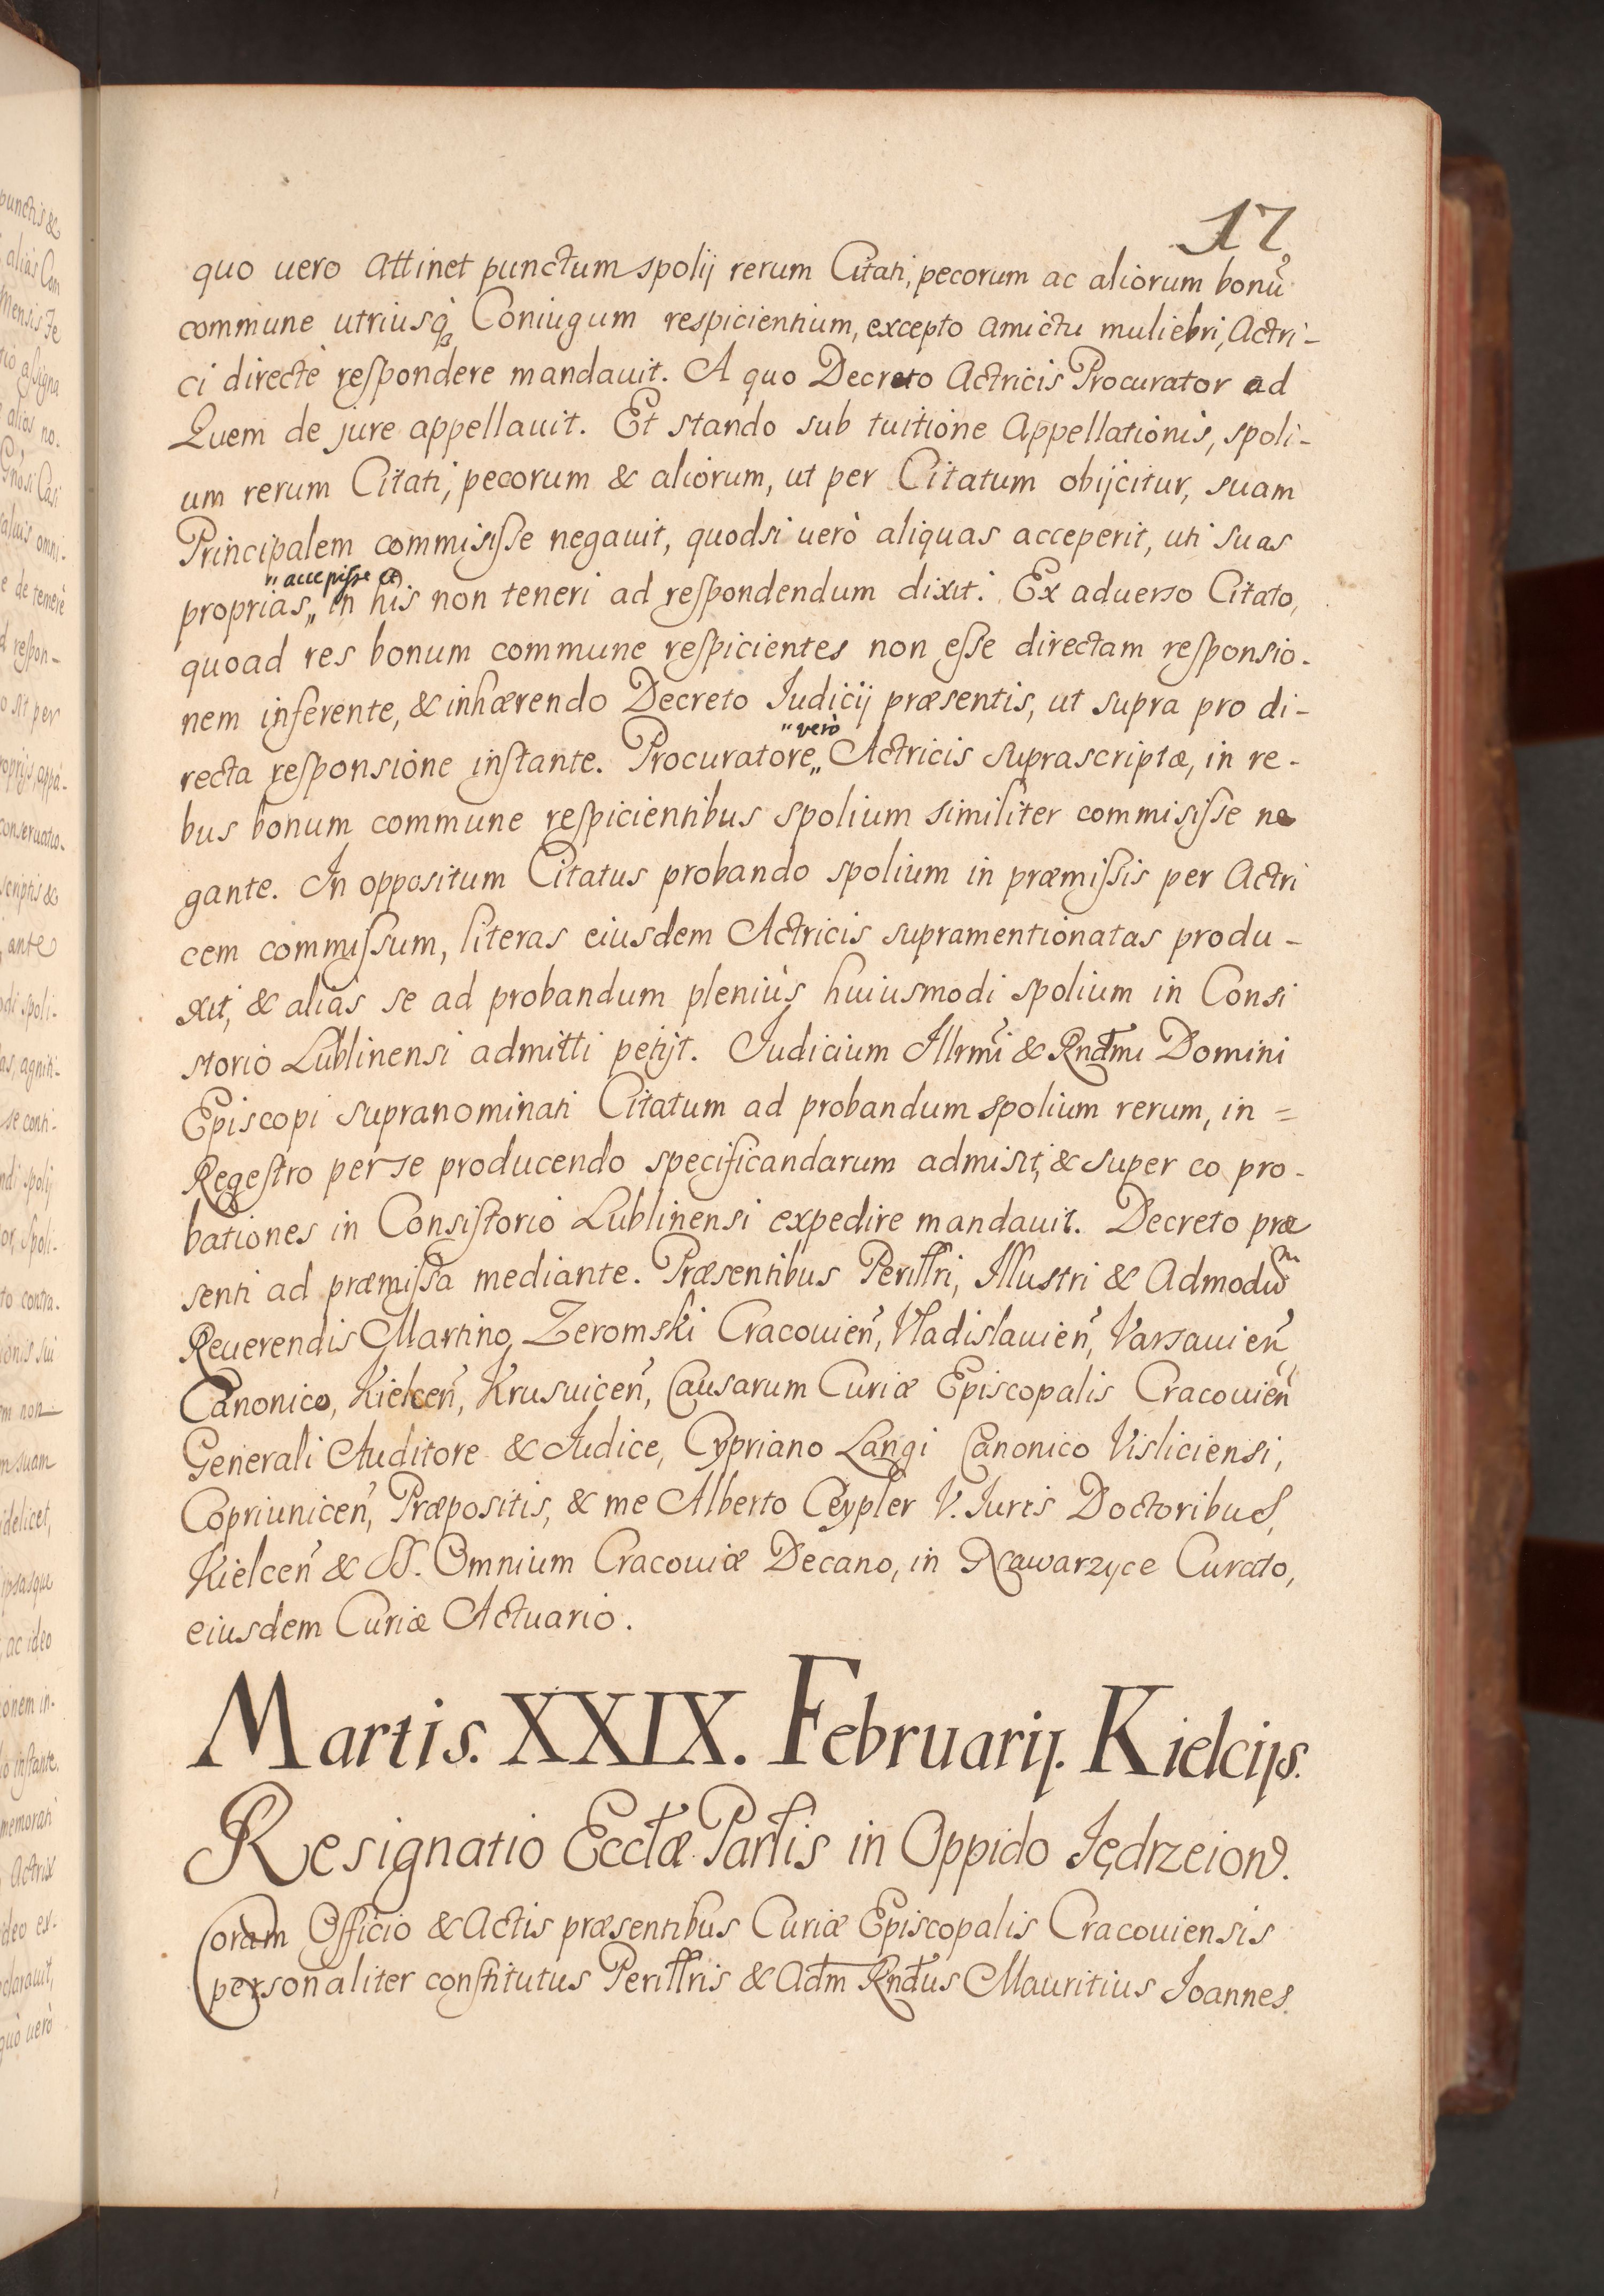 17
quo uero attinet punctum spolij rerum Citati, pecorum ac aliorum bonũ
commune utriusq₃ Coniugum respicientium, excepto amictu muliebri, Actri-
ci directè respondere mandauit. A quo Decreto Actricis Procurator ad
Quem de jure appellauit. Et stando sub tuitione Appellationis, spoli-
um rerum Citati, pecorum & aliorum, ut per Citatum obijcitur, suam
Principalem commisisse negauit, quodsi uerò aliquas acceperit, uti suas
„ accepisse et
proprias„ in his non teneri ad respondendum dixit. Ex aduerso Citato,
quoad res bonum commune respicientes non esse directam responsio-
nem inferente, & inhærendo Decreto Iudicij præsentis, ut supra pro di-
„ verò
recta responsione instante. Procuratore„ Actricis suprascriptæ, in re-
bus bonum commune respicientibus spolium similiter commisisse ne
gante. In oppositum Citatus probando spolium in præmissis per Actri
cem commissum, literas eiusdem Actricis supramentionatas produ-
xit, & alias se ad probandum pleniùs huiusmodi spolium in Consi
storio Lublinensi admitti petijt. Iudicium Illrmi & Rndmi Domini
Episcopi supranominati Citatum ad probandum spolium rerum, in =
Regestro per se producendo specificandarum admisit, & super eo pro-
bationes in Consistorio Lublinensi expedire mandauit. Decreto præ
senti ad præmissa mediante. Præsentibus Perillri, Illustri & Admodũm
Reuerendis Martino Zeromski Cracouien̄, Vladislauien̄, Varsauien̄
Canonico, Kielcen̄, Krusuicen̄, Causarum Curiæ Episcopalis Cracouien̄
Generali Auditore & Iudice, Cypriano Langi Canonico Visliciensi,
Copriunicen̄, Præpositis, & me Alberto Ceypler V. Iuris Doctoribus,
Kielcen̄ & SS. Omnium Cracouiæ Decano, in Nawarzyce Curato,
eiusdem Curiæ Actuario.
Martis. XXIX. Februarij. Kielcijs.
Resignatio Ecclæ Parlis in Oppido Jędrzeiow.
Coram Officio & Actis præsentibus Curiæ Episcopalis Cracouiensis
personaliter constitutus Perillris & Adm Rndus Mauritius Joannes.